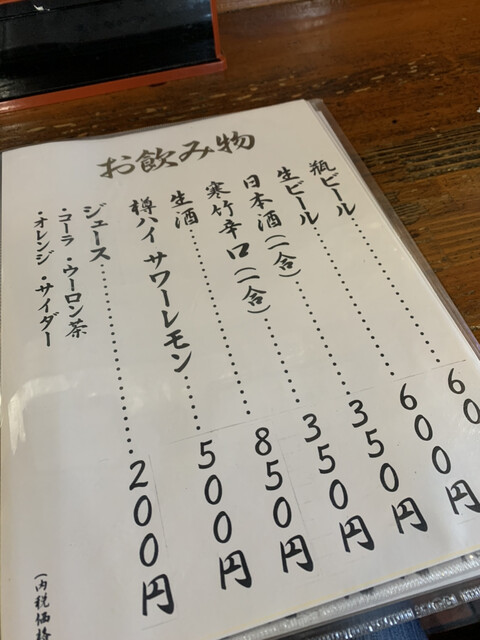 お飲み物
瓶ビール……………60
生ビール……………600円
日本酒(一合)……………350円
寒竹辛口(一合)……………350円
生酒……………850円
樽ハイ サワーレモン……500円
ジュース……………200円
・コーラ・ウーロン茶
・オレンジ・サイダー
(内税価格